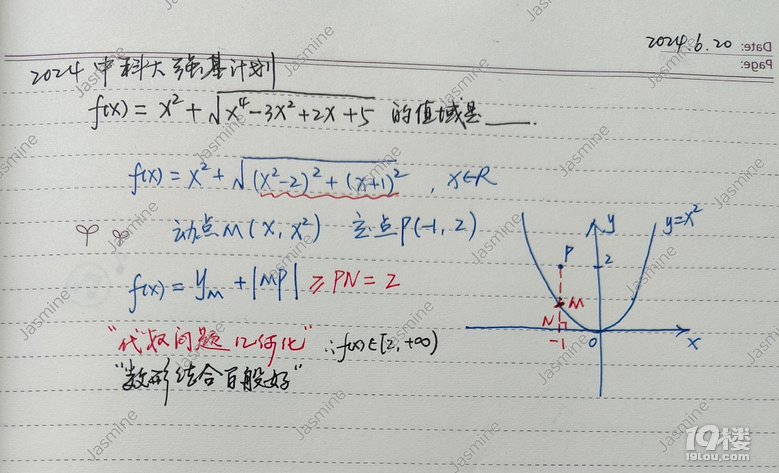 2024.6.20 Date:
Page:
2024 中科大强基计划
f(x) = x² + √(x⁴-3x²+2x+5) 的值域是____.
f(x) = x² + √((x²-2)²+(x+1)²) , x∈R
动点M(x, x²) 定点P(-1, 2)
f(x) = y_M + |MP| ≥ PN = 2
"代数问题几何化" ∴f(x)∈[2,+∞)
"数形结合百般好"
y
y=x²
P
2
M
N
-1
0
x
Jasmine
19楼
19lou.com